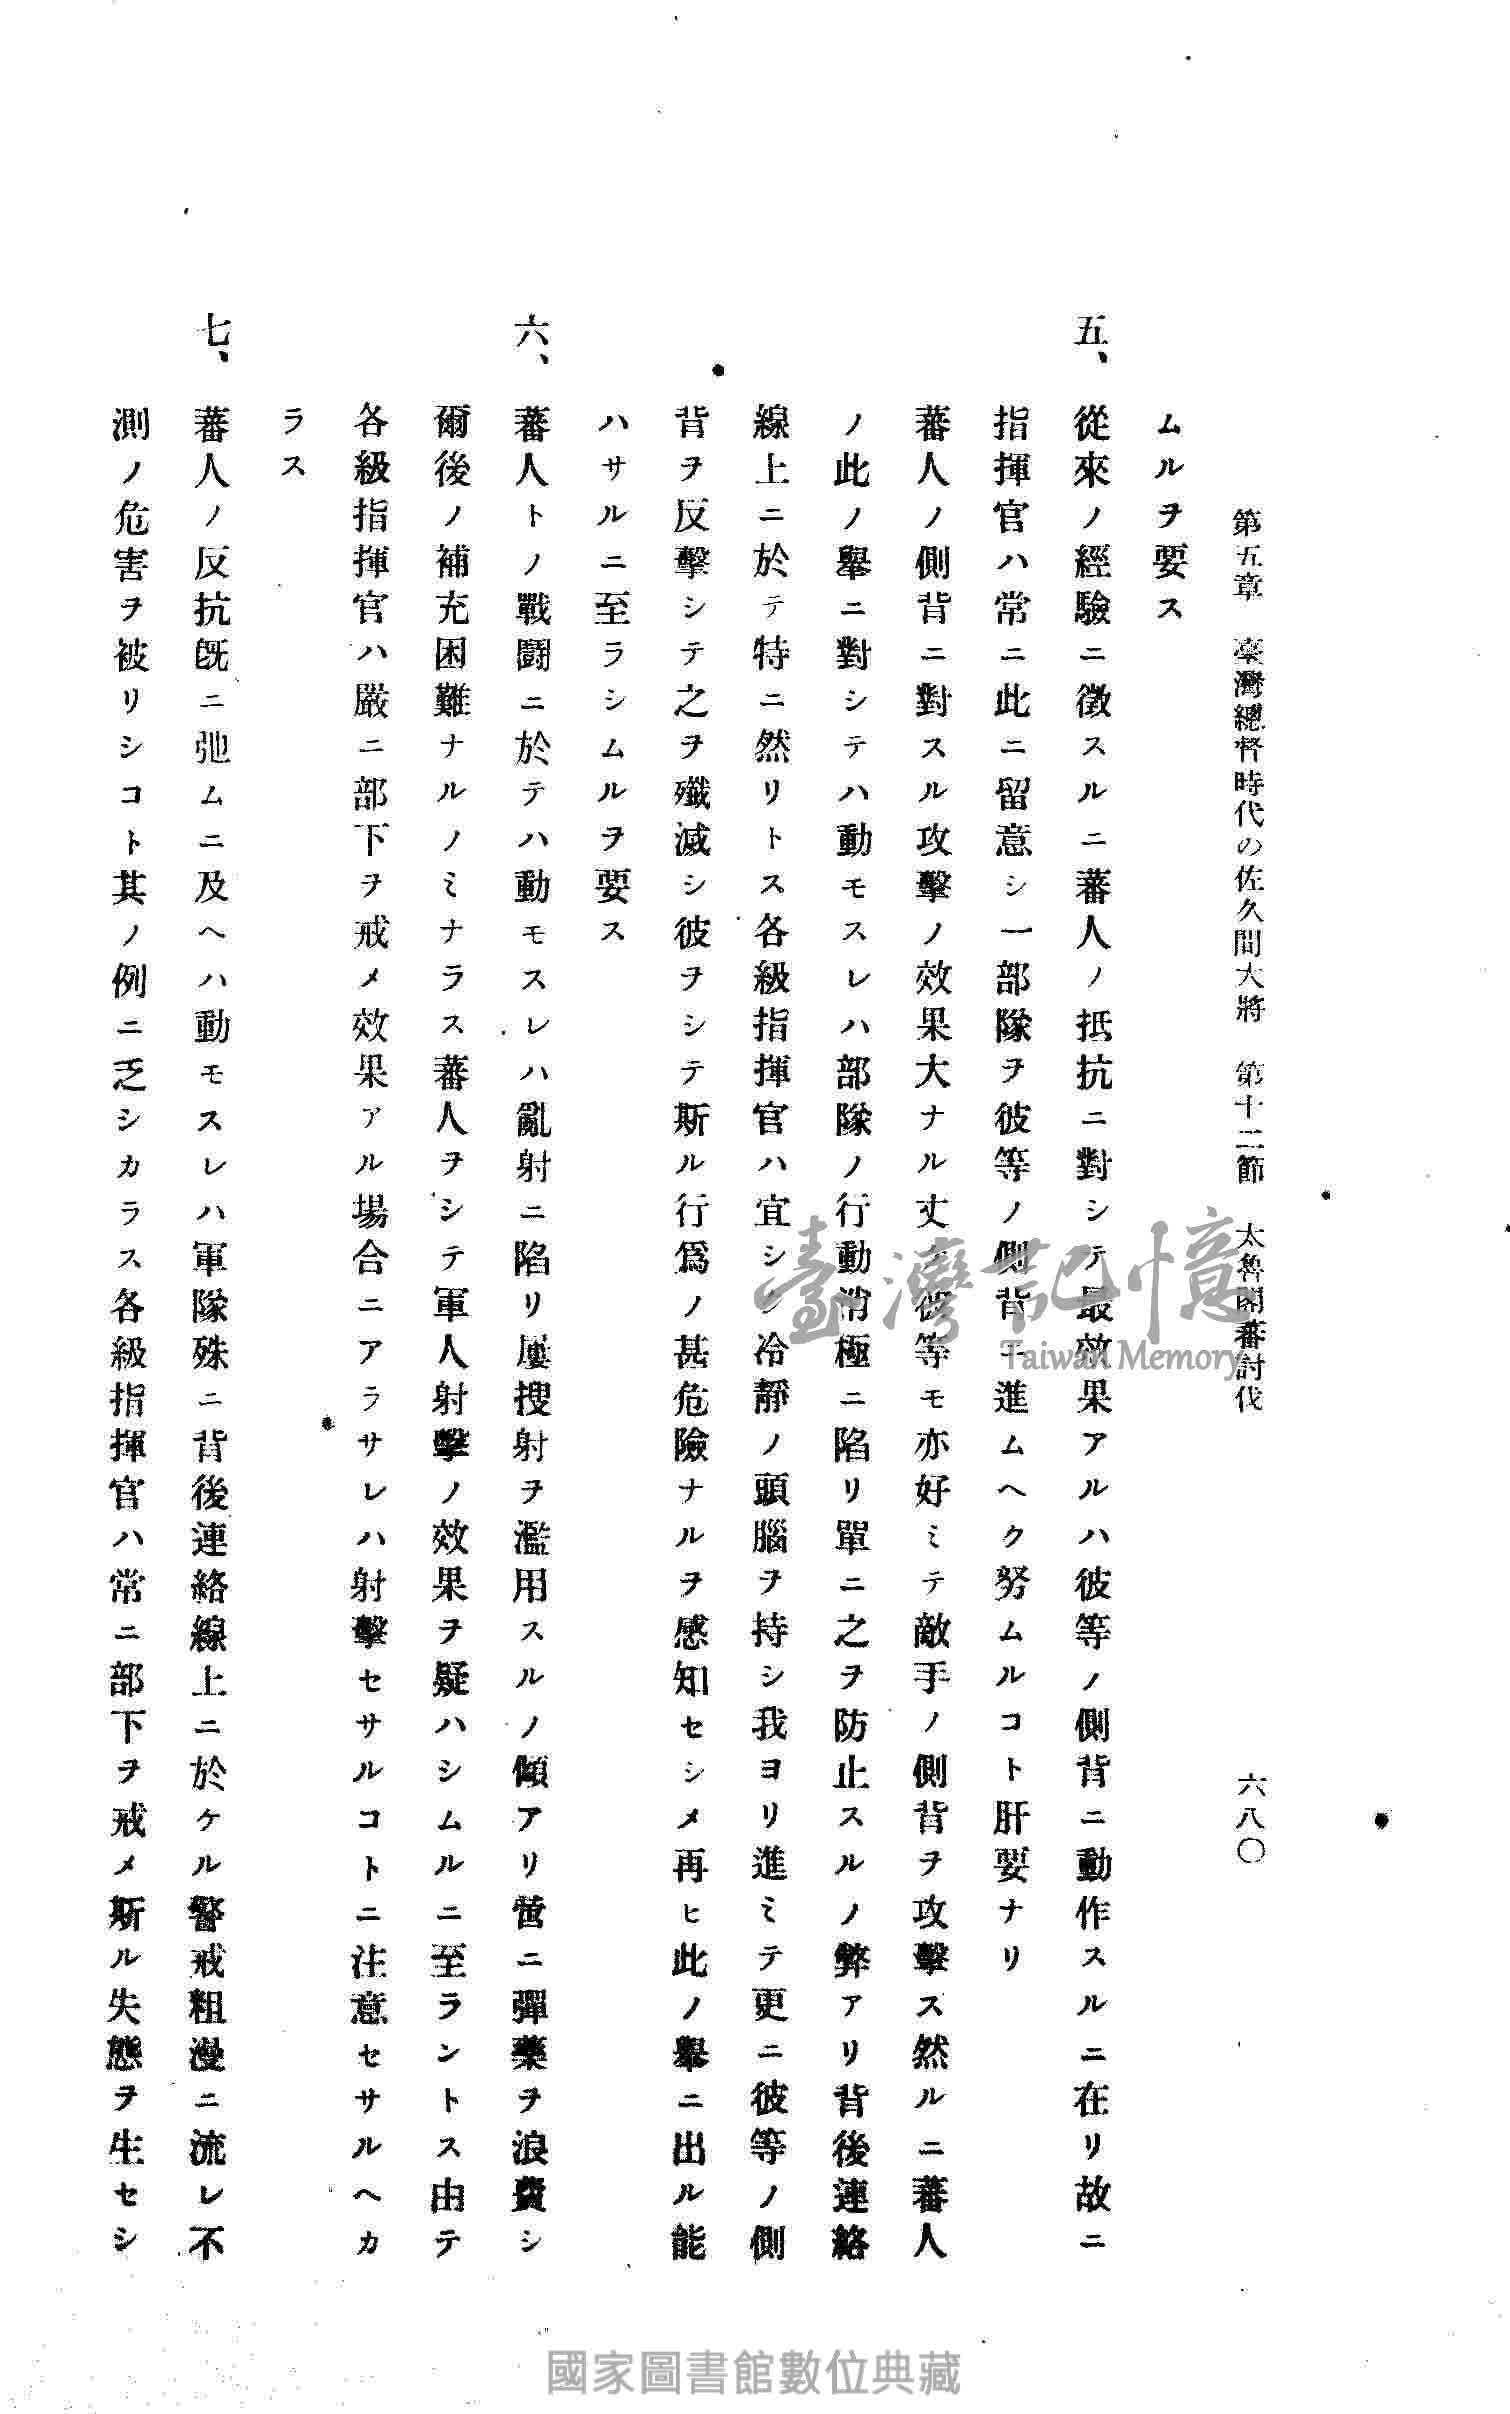 第五章 臺灣總督時代の佐久間大將 第十二節 太魯閣蕃討伐 六八〇
ムルヲ要ス
五、從來ノ經驗ニ徴スルニ蕃人ノ抵抗ニ對シテ最效果アルハ彼等ノ側背ニ動作スルニ在リ故ニ
指揮官ハ常ニ此ニ留意シ一部隊ヲ彼等ノ側背ニ進ムヘク努ムルコト肝要ナリ
蕃人ノ側背ニ對スル攻擊ノ效果大ナル丈ケ彼等モ亦好ミテ敵手ノ側背ヲ攻擊ス然ルニ蕃人
ノ此ノ擧ニ對シテハ動モスレハ部隊ノ行動消極ニ陷リ單ニ之ヲ防止スルノ弊アリ背後連絡
線上ニ於テ特ニ然リトス各級指揮官ハ宜シク冷靜ノ頭腦ヲ持シ我ヨリ進ミテ更ニ彼等ノ側
背ヲ反擊シテ之ヲ殲滅シ彼ヲシテ斯ル行爲ノ甚危險ナルヲ感知セシメ再ヒ此ノ擧ニ出ル能
ハサルニ至ラシムルヲ要ス
六、蕃人トノ戰鬪ニ於テハ動モスレハ亂射ニ陷リ屢搜射ヲ濫用スルノ傾アリ啻ニ彈藥ヲ浪費シ
爾後ノ補充困難ナルノミナラス蕃人ヲシテ軍人射擊ノ效果ヲ疑ハシムルニ至ラントス由テ
各級指揮官ハ嚴ニ部下ヲ戒メ效果アル場合ニアラサレハ射擊セサルコトニ注意セサルヘカ
ラス
七、蕃人ノ反抗既ニ弛ムニ及ヘハ動モスレハ軍隊殊ニ背後連絡線上ニ於ケル警戒粗漫ニ流レ不
測ノ危害ヲ被リシコト其ノ例ニ乏シカラス各級指揮官ハ常ニ部下ヲ戒メ斯ル失態ヲ生セシ
臺灣記憶
Taiwan Memory
國家圖書館數位典藏